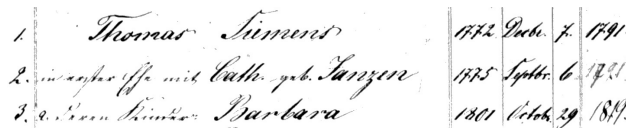 1. Thomas Siemens 1772 Decbr. 7. 1791
2. in erster Ehe mit Cath. geb. Janzen 1775 Septbr. 6 1791
3. a. deren Kinder: Barbara 1801 Octobr. 29 1819.